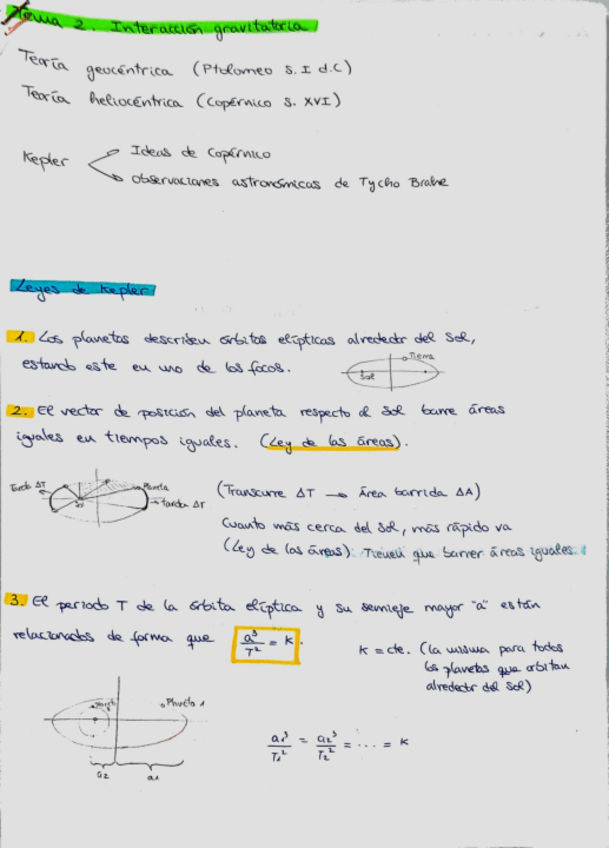 Tema 2. Interacción gravitatoria
Teoría geocéntrica (Ptolomeo s. I d.C)
Teoría heliocéntrica (Copérnico s. XVI)
Kepler
Ideas de Copérnico
observaciones astronómicas de Tycho Brahe
Leyes de Kepler
1. Los planetas describen órbitas elípticas alrededor del Sol,
estando este en uno de los focos.
Tierra
Sol
2. El vector de posición del planeta respecto al Sol barre áreas
iguales en tiempos iguales. (Ley de las áreas).
Tarda ΔT
Planeta
Sol
tarda ΔT
(Transcurre ΔT → Área barrida ΔA)
Cuanto más cerca del Sol, más rápido va
(Ley de las áreas). Tienen que barrer áreas iguales.
3. El periodo T de la órbita elíptica y su semieje mayor "a" están
relacionados de forma que a³/T² = K.
K = cte. (la misma para todos
los planetas que orbitan
alrededor del Sol)
Planeta 1
a2
a1
a1³/T1² = a2³/T2² = ... = K